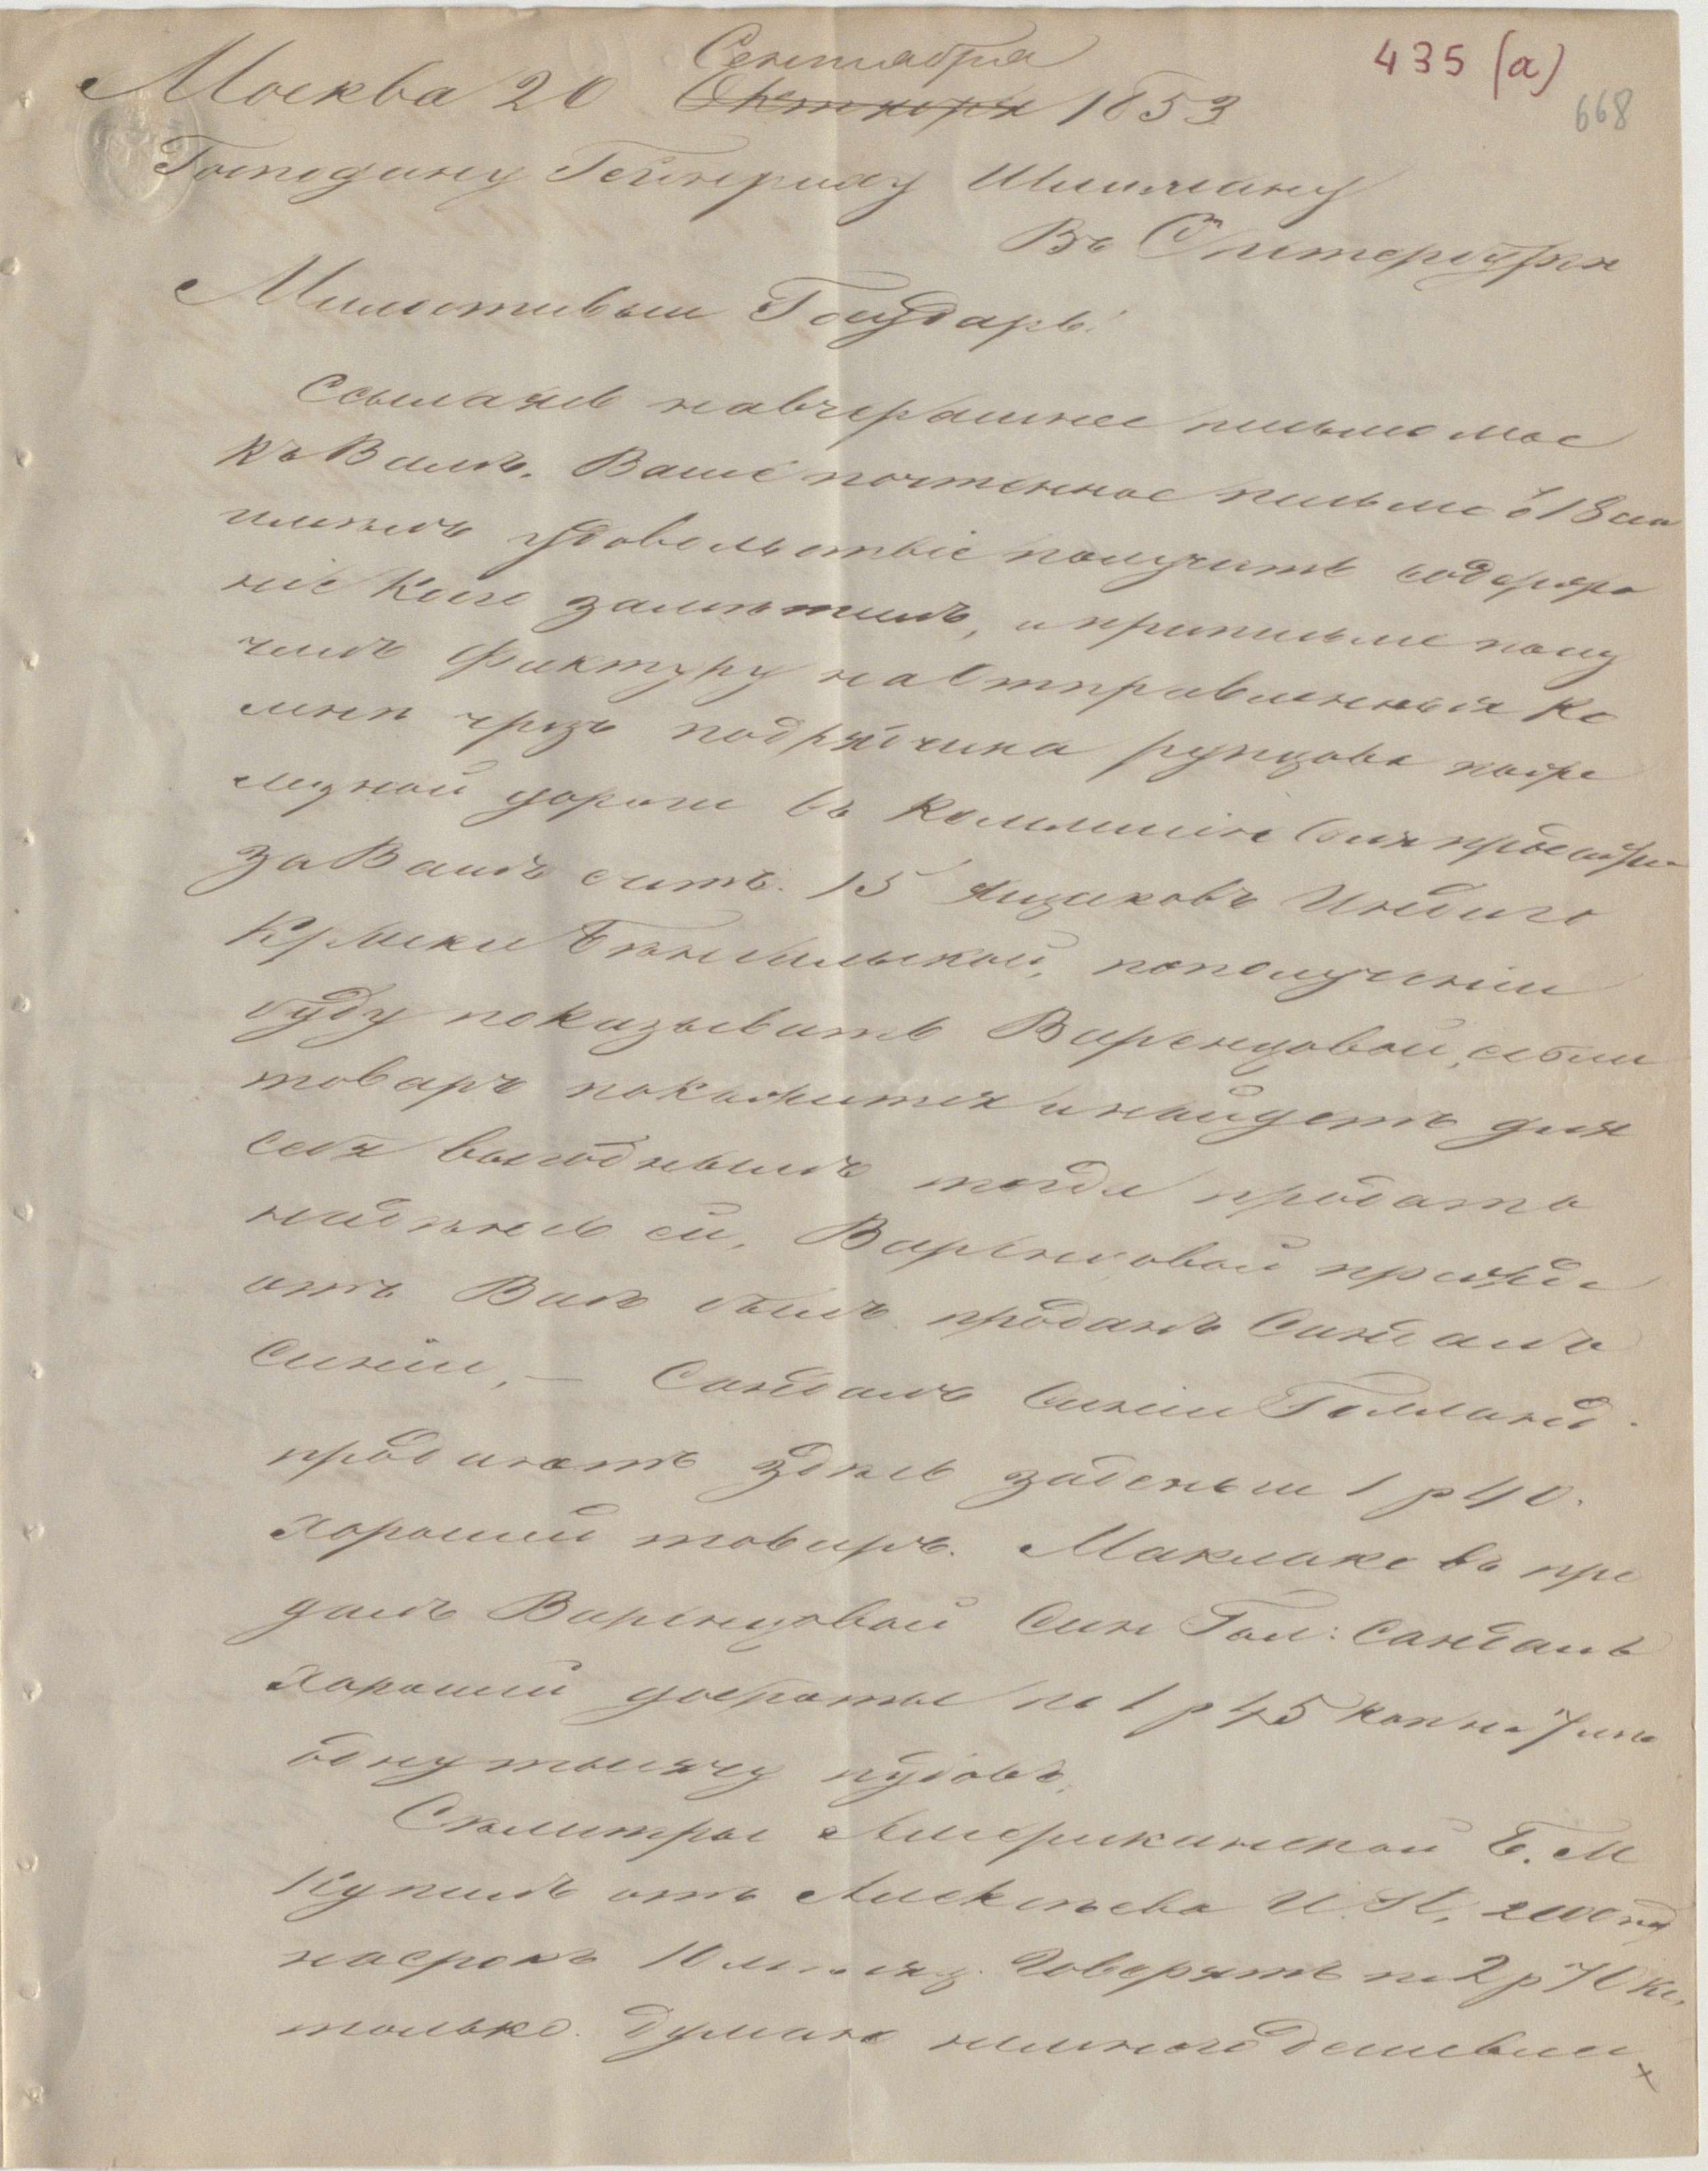 435 (а)
668
Москва 20 Сентября Октября 1853
Господину Гейнриху Шлиману
Въ С.т Питербурхе
Милостивыи Государь!
Ссылаясь навчерашнее письмо мое
къ Вамъ. Ваше почтенное письмо о 18 сии
имелъ удовольствіе получить содержа
ніе коего заметилъ, и приписьме полу
чилъ фактуру на Отправленныя ко
мне чрезъ подрядчика рунцова пожеле
лезной дороги въ Коммисію для продажи
за Вашъ считъ. 15 ящиковъ Индиго
Крмеки Бенгальской, пополученіи
буду показывать Варенцовой, если
товаръ покажится инайдетъ для
себя выгоднымъ тогда продать
надеюсь ей. Варенцовой прежде
отъ Васъ былъ проданъ Сандалъ
Синіи, — Сандалъ Синіи Голланд.
продаютъ здесь заденьги 1 р 40.
хорошии товаръ. Маклаковъ про
далъ Варенцовой Син Гол: Сандалъ
хорошии доброты по 1 р 45 коп на 7 ме
одну тысячу пудовъ.
Селитры Американскои Б. М
Купилъ отъ Алексеева И. К. 2000 пд
насрокъ 10 месяц. Говорятъ по 2 р 70 ко.
только. думаю немного дешевле